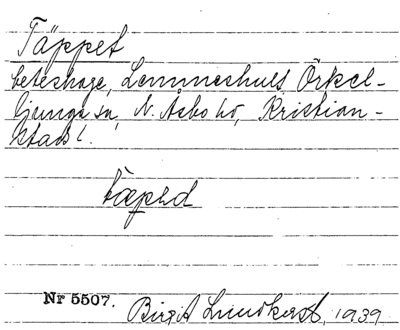 Täppet
beteshage, Lemmeshults Örkel-
ljunga sn, N. Åsbo hd, Kristian-
stads l.
Nr 5507. Birgit Lundkvist, 1939